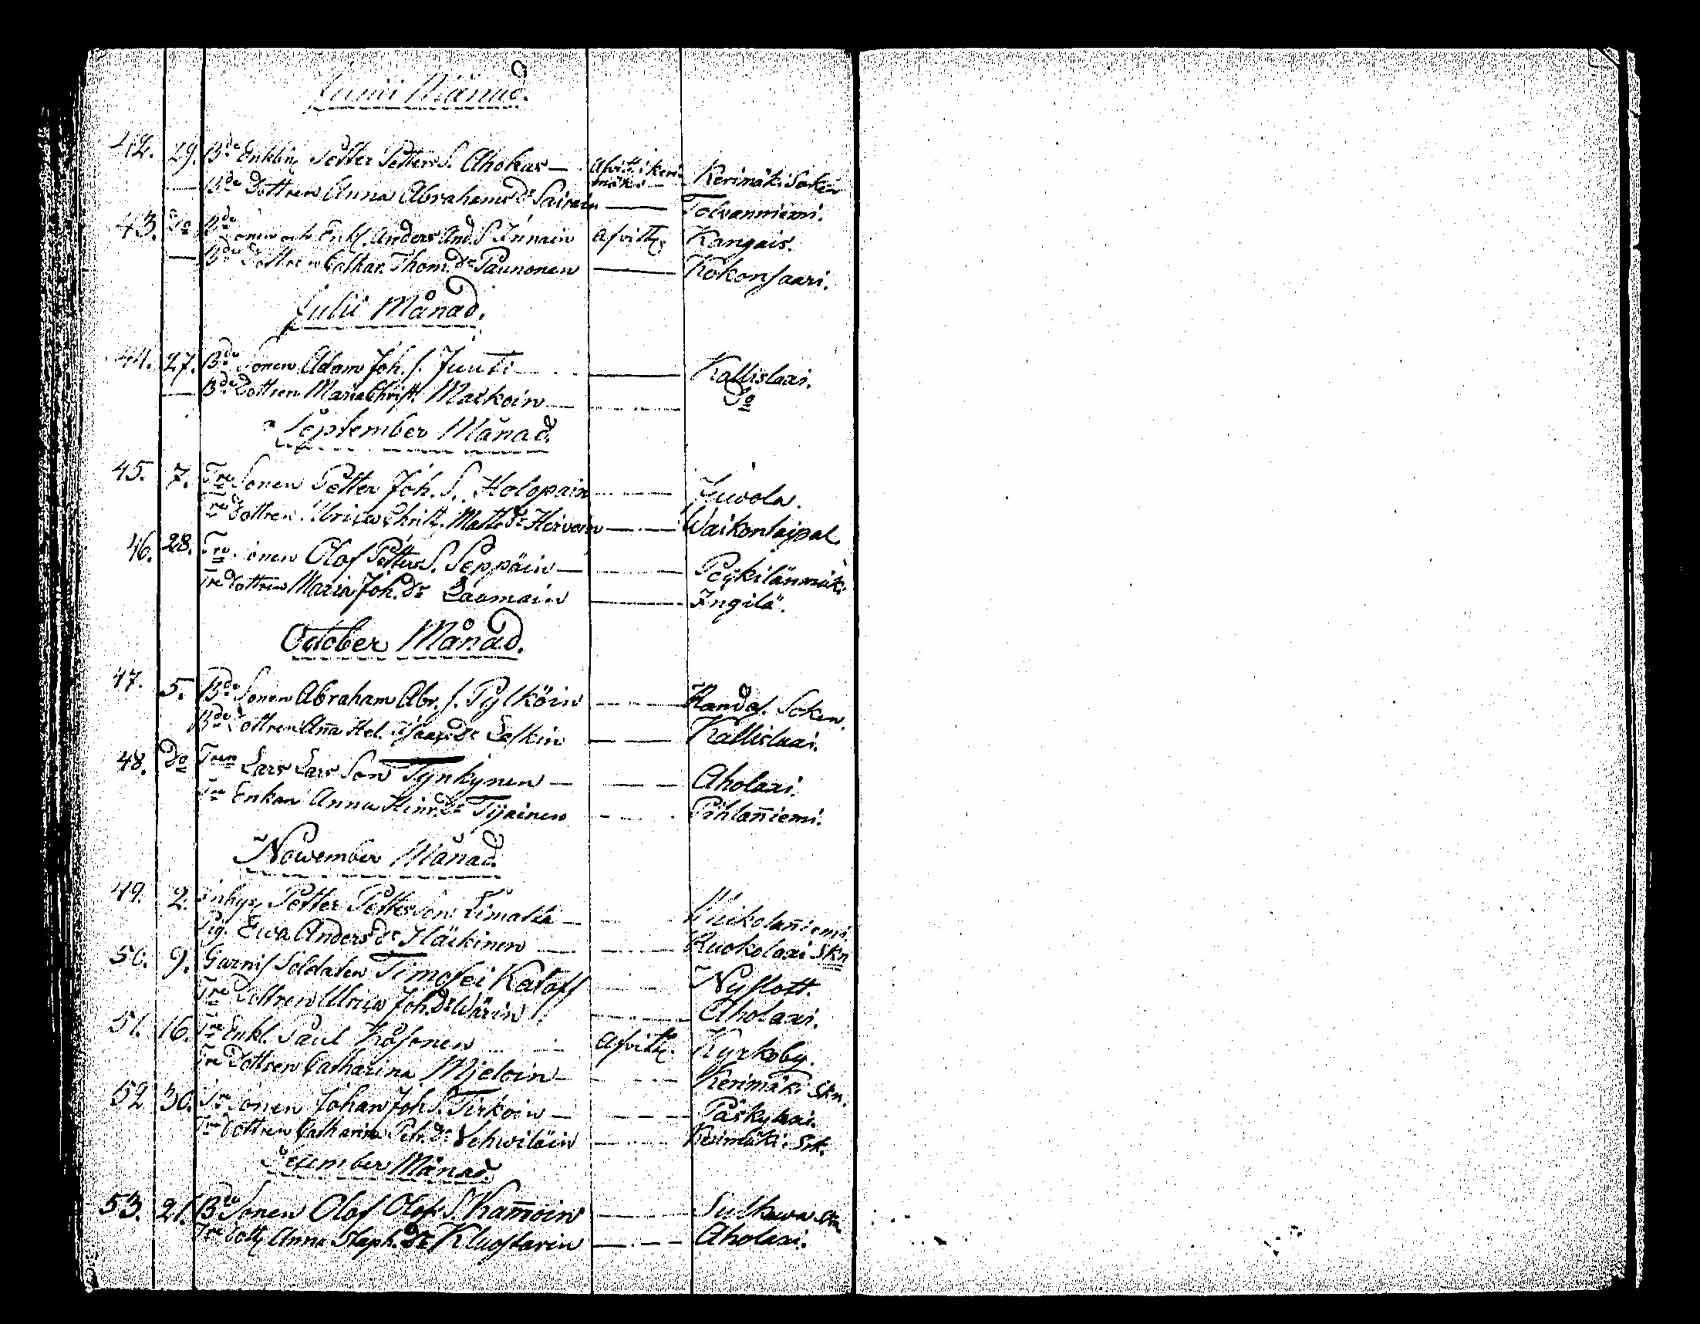 Junii Månad.
42. 29. Bde Enkling Petter Petters S. Ahokas — Afvitt. i Keri-
mäki — Kerimäki Soken
— Bde Dottren Anna Abrahams Dr Sairain — Tolvanniemi.
43. Do Bde Sonen och Enkl. Anders And. S. Innain Afvitt. Kangais.
— Bde Dottren Cathar. Thom. Dr Paunonen — Kokonsaari.
Julii Månad.
44. 27. Bde Sonen Adam Joh. S. Juuti — Kallislaxi.
— Bde Dottren Maria Christ. Maikoin — Do
September Månad.
45. 7. Tre Sonen Petter Joh. S. Holopain — Juvola.
Tre Dottren Ulrica Christ. Matts Dr Hirvoin — Waikontaipal.
46. 28. Tre Sonen Olof Petters S. Seppäin — Pöykilänmäki
Tre Dottren Maria Joh. Dr Laamain — Ingilä.
October Månad.
47. 5. Bde Sonen Abraham Abr. S. Pylköin — Randas. Soken.
Bde Dottren Aña Hel. Isaacs Dr Laskin — Kallislaxi.
48. Do Tren Lars Lars Son Tynkynen — Aholaxi.
Tre Enkan Anna Hinr. Dr Tijainen — Pihlañiemi.
November Månad.
49. 2. Inhys. Petter Petterson Limatta — Mikolañiemi.
Pig. Ewa Anders Dr Häckinen — Ruokolaxi Skn
50. 9. Garnis. Soldaten Timofei Katoff — Nyslott.
Tre Dottren Ulrica Joh. Dr Wärin — Aholaxi.
51. 16. Tre Enkl. Paul Kosonen Afvitt. Kyrkoby.
Tre Dottren Catharina Mjeloin — Kerimäki Skn.
52 30. Tre Sonen Johan Joh. S. Turkoin — Pääskylaxi.
Tre Dottren Catharina Petr. Dr Wehwiläin — Kerimäki. Sok.
December Månad.
53. 21. Bde Sonen Olof Olofs S. Kam̄oin — Sulkawa Skn
Tre Dott. Anna Staph. Dr Kluostarin — Aholaxi.